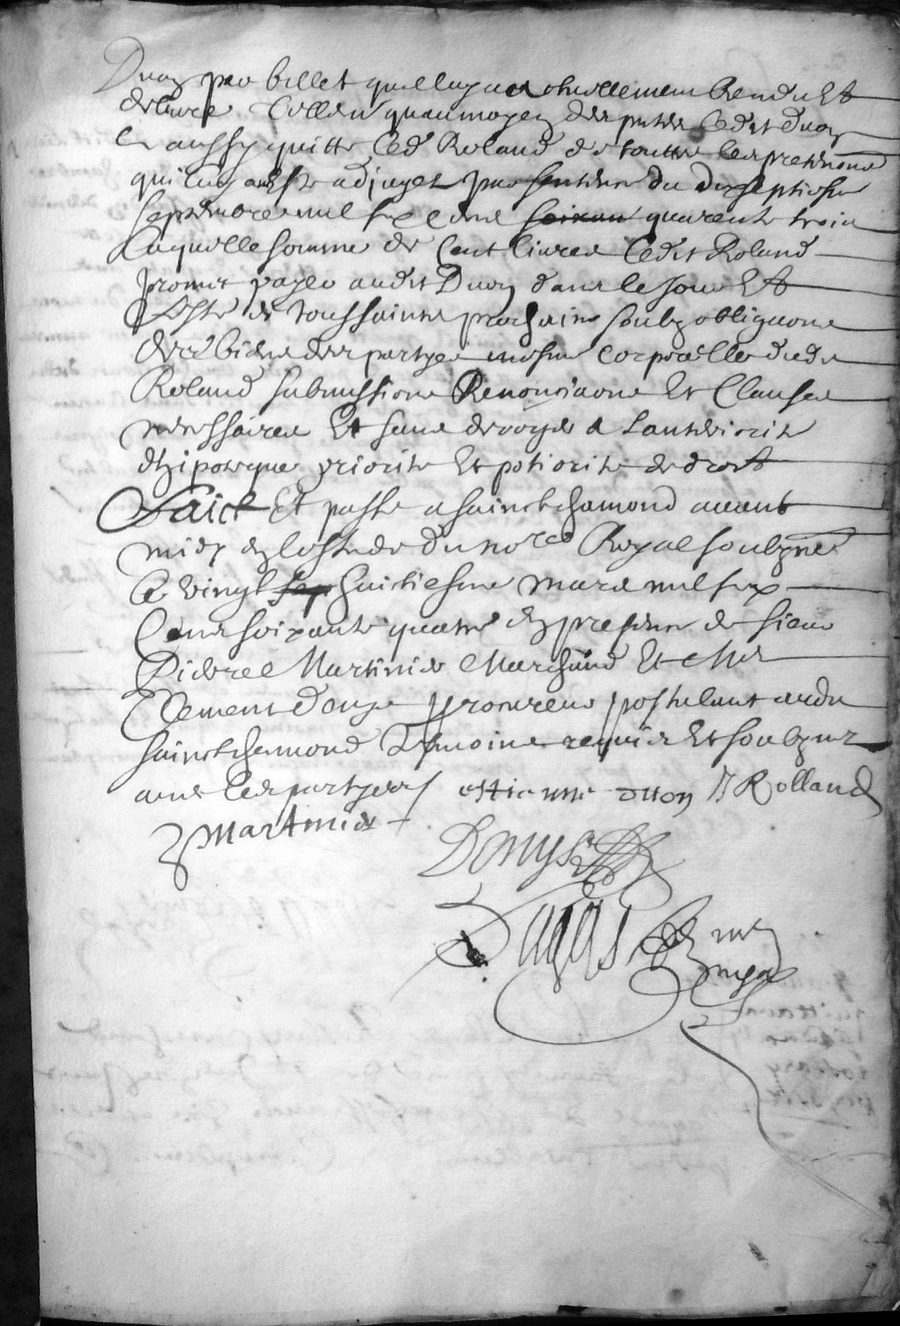 Duon par billet quil luy a actuellement Rendu Et
delivré Celluy qu au moyen des putes Ledit Duon
l aussy quitte Led Roland de toutte les pretentions
qui luy a este adjuget par sentence du dixseptiesme
septembre mil six cent soixan quarente trois
Laquelle somme de Cent livres Ledit Roland
promet payer audit Duon dans le jour Et
feste de Toussaintz prochains soubz obligaons
des biens des partyes mesme corporelle dud
Roland submissions Renonciaons Et Clauses
necessaires Et sans deroger a Lanteriorite
dhipoteque priorite Et potiorite de droit
Faict Et passe a sainct chamond avant
midy En lestude du no.re Royal soubzne
Ce vingt sep huictiesme mars mil six
Cens soixante quatre En presence de sieur
Pierre Martinier Marchand Et Me
Clement Denys procureur postulant aud
sainct chamond Temoins requis Et soubznez
avec les partyes estienne duon B Rolland
Martinier
Denys
Dugas